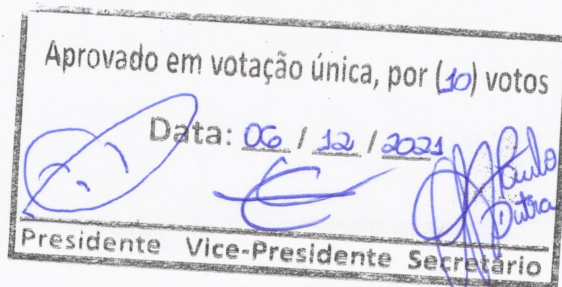 Aprovado em votação única, por (10) votos
Data: 06 / 12 / 2021
Paulo
Dutra
Presidente Vice-Presidente Secretário